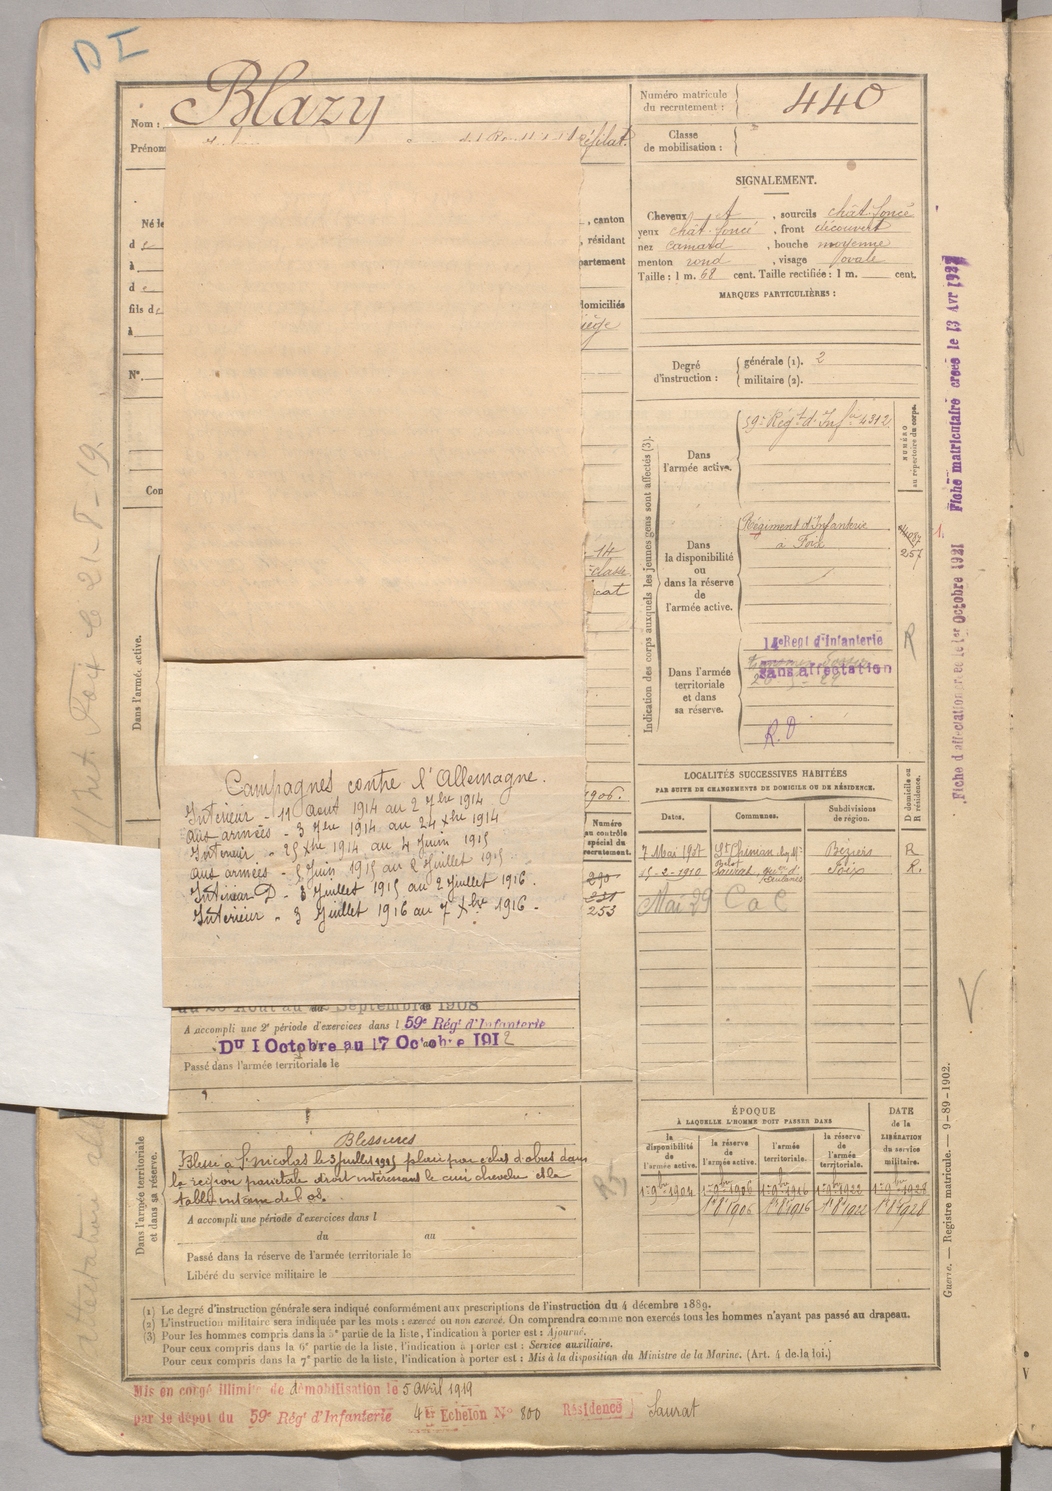 D I
Nom : Blazy
Prénom
Né le
d
à
d
fils d
à
N°
Con
Dans l'armée active.
, canton
, résidant
partement
domiciliés
iège
14
classe
1906.
Numéro matricule
du recrutement : 440
Classe
de mobilisation :
SIGNALEMENT.
Cheveux , sourcils chât. foncé
yeux chât. foncé , front découvert
nez camard , bouche moyenne
menton rond , visage ovale
Taille : 1 m. 68 cent. Taille rectifiée : 1 m. cent.
MARQUES PARTICULIÈRES :
Degré
d'instruction :
générale (1). 2
militaire (2).
Indication des corps auxquels les jeunes gens sont affectés (3).
NUMÉRO
au répertoire du corps.
Dans
l'armée active.
59e Régt d'Infie 4312
Dans
la disponibilité
ou
dans la réserve
de
l'armée active.
Régiment d'Infanterie
à Foix
257
Dans l'armée
territoriale
et dans
sa réserve.
14e Regt d'Infanterie
sans affectation
R.D
R
LOCALITÉS SUCCESSIVES HABITÉES
PAR SUITE DE CHANGEMENTS DE DOMICILE OU DE RÉSIDENCE.
Dates.
Communes.
Subdivisions
de région.
D domicile ou
R résidence.
7 Mai 1908 St Chinian Béziers R
15-2-1910 Saurat Foix R.
Mai 29 C a C
Numéro
au contrôle
spécial du
recrutement.
290
231
253
Campagnes contre l'Allemagne.
Intérieur - 11 Aout 1914 au 2 7bre 1914
aux armées - 3 7bre 1914 au 24 Xbre 1914
Intérieur - 25 Xbre 1914 au 4 Juin 1915
aux armées - 5 Juin 1915 au 2 Juillet 1915
Intérieur D - 3 Juillet 1915 au 2 Juillet 1916.
Intérieur - 3 Juillet 1916 au 7 Xbre 1916 -
Septembre 1908
A accompli une 2e période d'exercices dans l 59e Rég' d'Infanterie
Du 1 Octobre au 17 Octobre 1912
Passé dans l'armée territoriale le
Dans l'armée territoriale
et dans sa réserve.
Blessures
Blessé à St Nicolas le 3 juillet 1915 plaie par éclat d'obus dans
la région pariétale droit intéressant le cuir chevelu et la
table interne de l'os.
A accompli une période d'exercices dans l
du au
Passé dans la réserve de l'armée territoriale le
Libéré du service militaire le
ÉPOQUE
À LAQUELLE L'HOMME DOIT PASSER DANS
DATE
de la
LIBÉRATION
du service
militaire.
la
disponibilité
de l'armée active.
la réserve
de
l'armée active.
l'armée
territoriale.
la réserve
de
l'armée
territoriale.
1er 9bre 1904 1er 9bre 1906 1er 9bre 1916 1er 9bre 1922 1er 9bre 1928
1er 8bre 1906 1er 8bre 1916 1er 8bre 1922 1er 8bre 1928
(1) Le degré d'instruction générale sera indiqué conformément aux prescriptions de l'instruction du 4 décembre 1889.
(2) L'instruction militaire sera indiquée par les mots : exercé ou non exercé. On comprendra comme non exercés tous les hommes n'ayant pas passé au drapeau.
(3) Pour les hommes compris dans la 5e partie de la liste, l'indication à porter est : Ajourné.
Pour ceux compris dans la 6e partie de la liste, l'indication à porter est : Service auxiliaire.
Pour ceux compris dans la 7e partie de la liste, l'indication à porter est : Mis à la disposition du Ministre de la Marine. (Art. 4 de la loi.)
Mis en congé illimité de démobilisation le 5 avril 1919
par le dépôt du 59e Rég' d'Infanterie 4er Echelon N° 800 Résidence Saurat
Guerre. — Registre matricule. — 9-89-1902.
Fiche d'affectation créée le 1er Octobre 1921
Fiche matriculaire créée le 13 Avr 1927
V